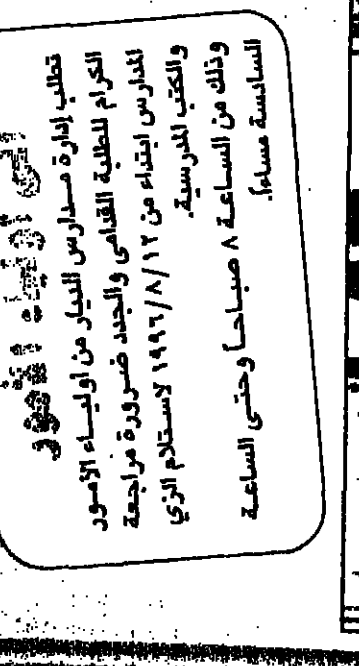 الى اولياء الأمور
تطلب إدارة مدارس الديار من اولياء الأمور
الكرام للطلبة القدامى والجدد ضرورة مراجعة
المدارس ابتداء من ١٩٩٦/٨/١٢ لاستلام الزي
والكتب المدرسية.
وذلك من الساعة ٨ صباحاً وحتى الساعة
السادسة مساءاً.